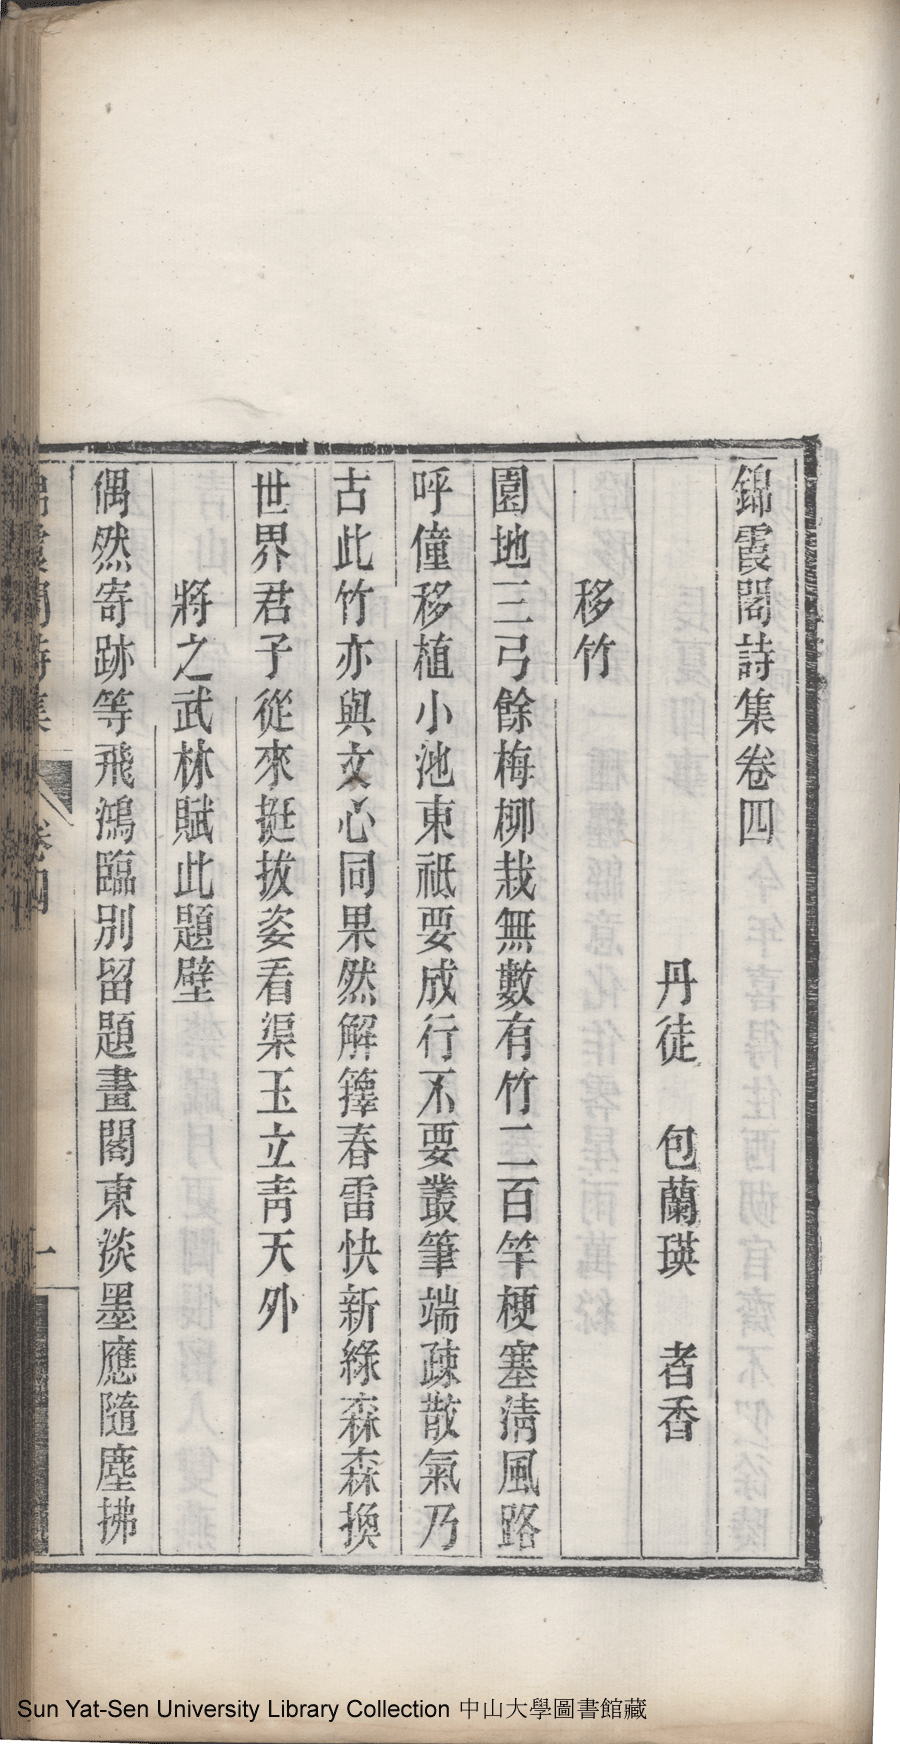 錦霞閣詩集卷四
丹徒 包蘭瑛 者香
移竹
園地三弓餘梅柳栽無數有竹二百竿梗塞淸風路
呼僮移植小池東祗要成行不要叢筆端疎散氣乃
古此竹亦與文心同果然解籜春雷快新綠森森換
世界君子從來挺拔姿看渠玉立靑天外
將之武林賦此題壁
偶然寄跡等飛鴻臨別留題畫閣東淡墨應隨塵拂
錦霞閣詩集 卷四 一
Sun Yat-Sen University Library Collection 中山大學圖書館藏